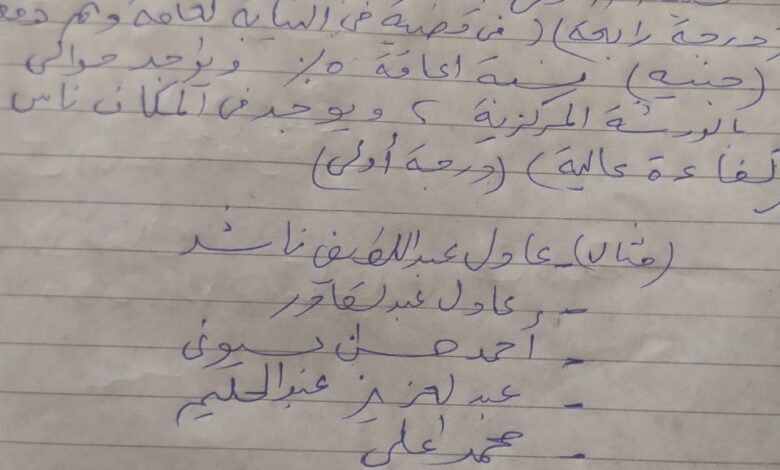 درجة رابعة) (فى قضية فى النيابة لحامة وتم دفع
(جنيه) بنسبة اعاقة ٥٪ ويوجد حوالى
بالورشة المركزية ٢ ويوجد فى المكان ناس
كفاءة عالية) (درجة أولى)
(مثال) - عادل عبد اللطيف ناشد
- عادل عبد القادر
- أحمد حسن بسيونى
- عبد لعزيز عبد الحليم
- محمد على